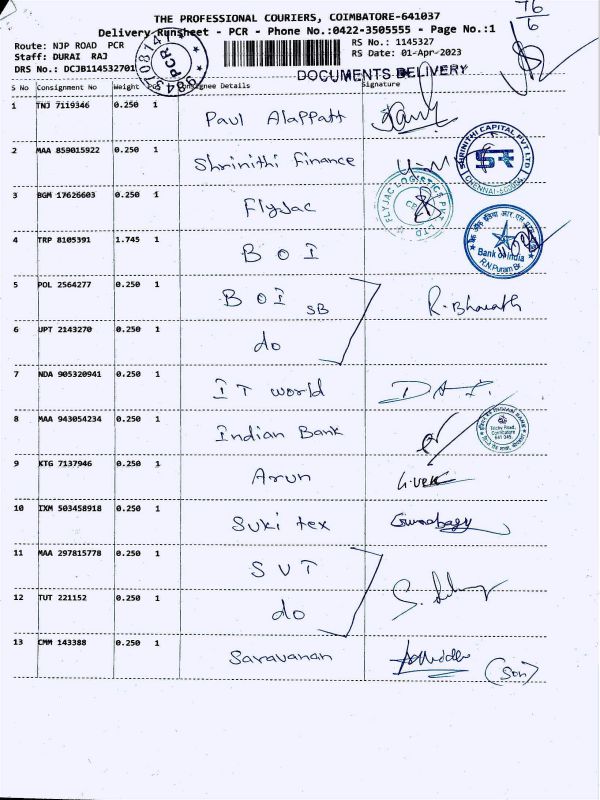 76
6
THE PROFESSIONAL COURIERS, COIMBATORE-641037
Delivery Runsheet - PCR - Phone No.:0422-3505555 - Page No.:1
Route: NJP ROAD PCR
RS No.: 1145327
Staff: DURAI RAJ
RS Date: 01-Apr-2023
DRS No.: DCJB114532701
PCR
DOCUMENTS DELIVERY
S No Consignment No Weight Pcs Consignee Details Signature
1 TNJ 7119346 0.250 1 Paul Alappatt
2 MAA 859015922 0.250 1 Shrinithi Finance
SHRINITHI CAPITAL PVT LTD
CHENNAI-600004
3 BGM 17626603 0.250 1 Flyjac
FLYJAC LOGISTICS PVT. LTD
4 TRP 8105391 1.745 1 BOI
Bank of India
R.N.Puram Br.
5 POL 2564277 0.250 1 BOI SB R. Bharath
6 UPT 2143270 0.250 1 do
7 NDA 905320941 0.250 1 IT world
8 MAA 943054234 0.250 1 Indian Bank
INDIAN BANK
Trichy Road,
Coimbatore
641 045
9 KTG 7137946 0.250 1 Arun
10 IXM 503458918 0.250 1 Suki tex
11 MAA 297815778 0.250 1 SVT
12 TUT 221152 0.250 1 do
13 CMM 143388 0.250 1 Saravanan (Son)